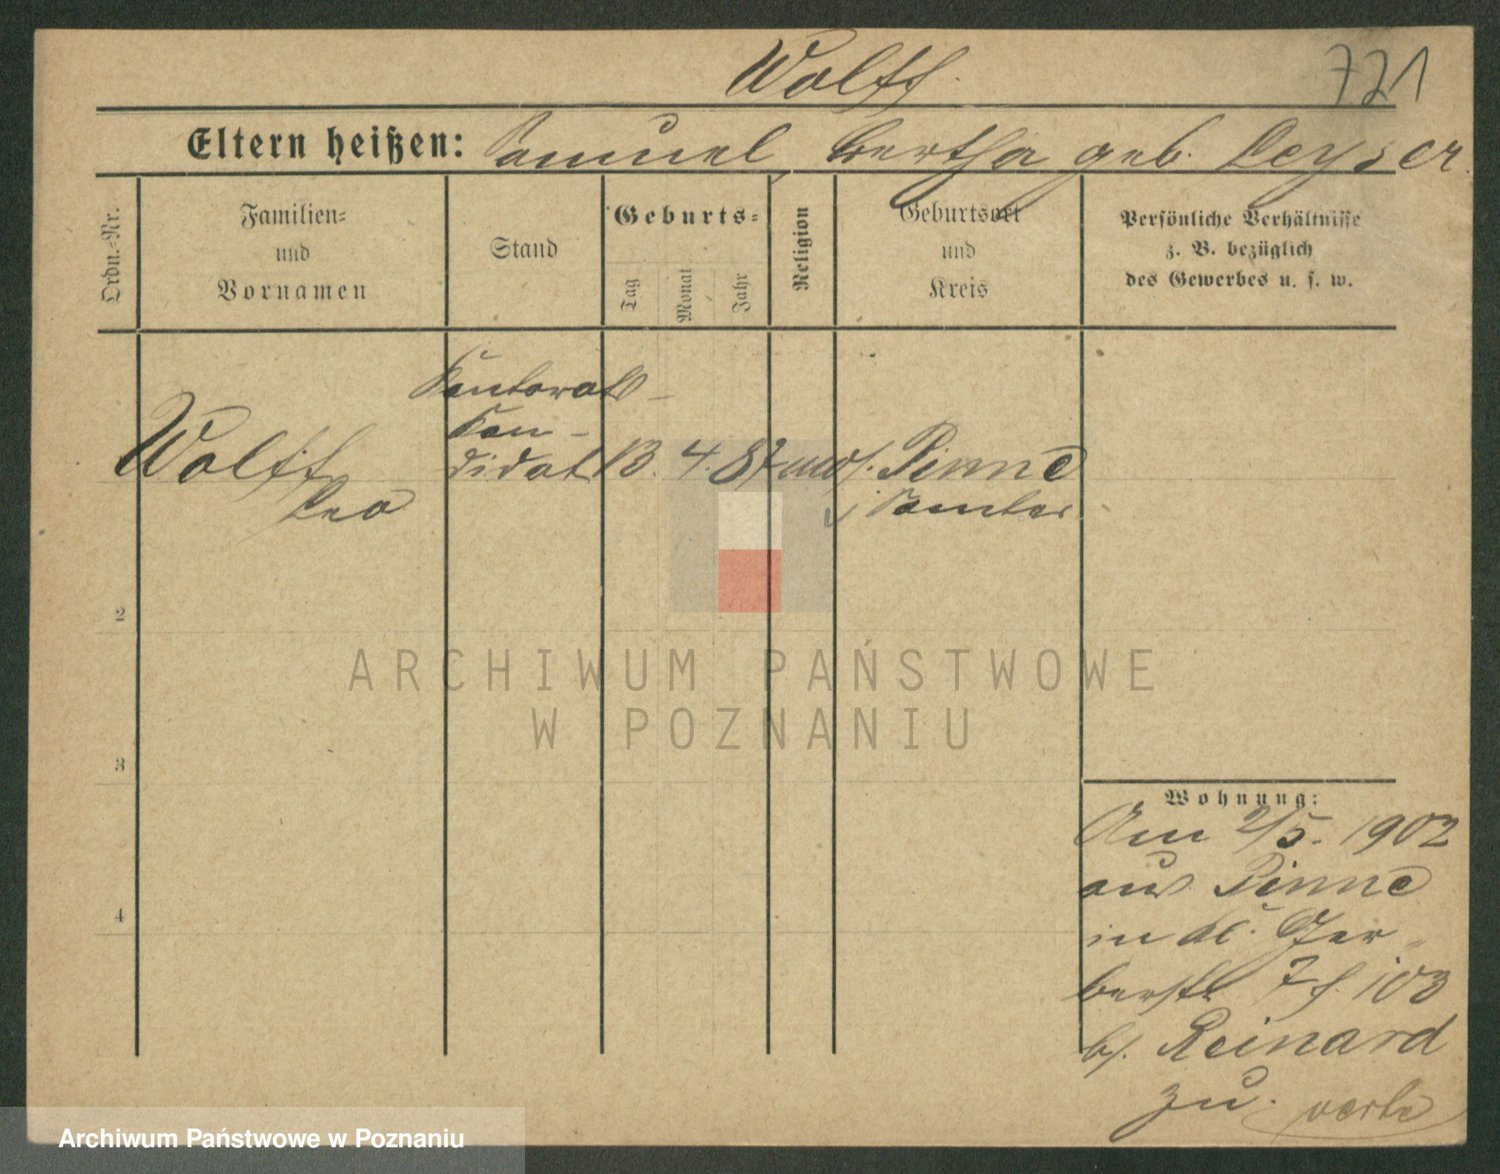 Wolff.
721
Eltern heißen: Samuel, Bertha geb. Leyser.
Ordn.-Nr.
Familien-
und
Vornamen
Stand
Geburts-
Tag
Monat
Jahr
Religion
Geburtsort
und
Kreis
Persönliche Verhältnisse
z. B. bezüglich
des Gewerbes u. s. w.
Kantorats-
Kan-
didat
Wolff
Leo
13. 4. 87 mos. Pinne
Samter
2
3
4
Wohnung:
Am 2/5. 1902
aus Pinne
in kl. Ger-
berstr 7 f. 103
b/. Reinard
zu. verte
ARCHIWUM PAŃSTWOWE
W POZNANIU
Archiwum Państwowe w Poznaniu